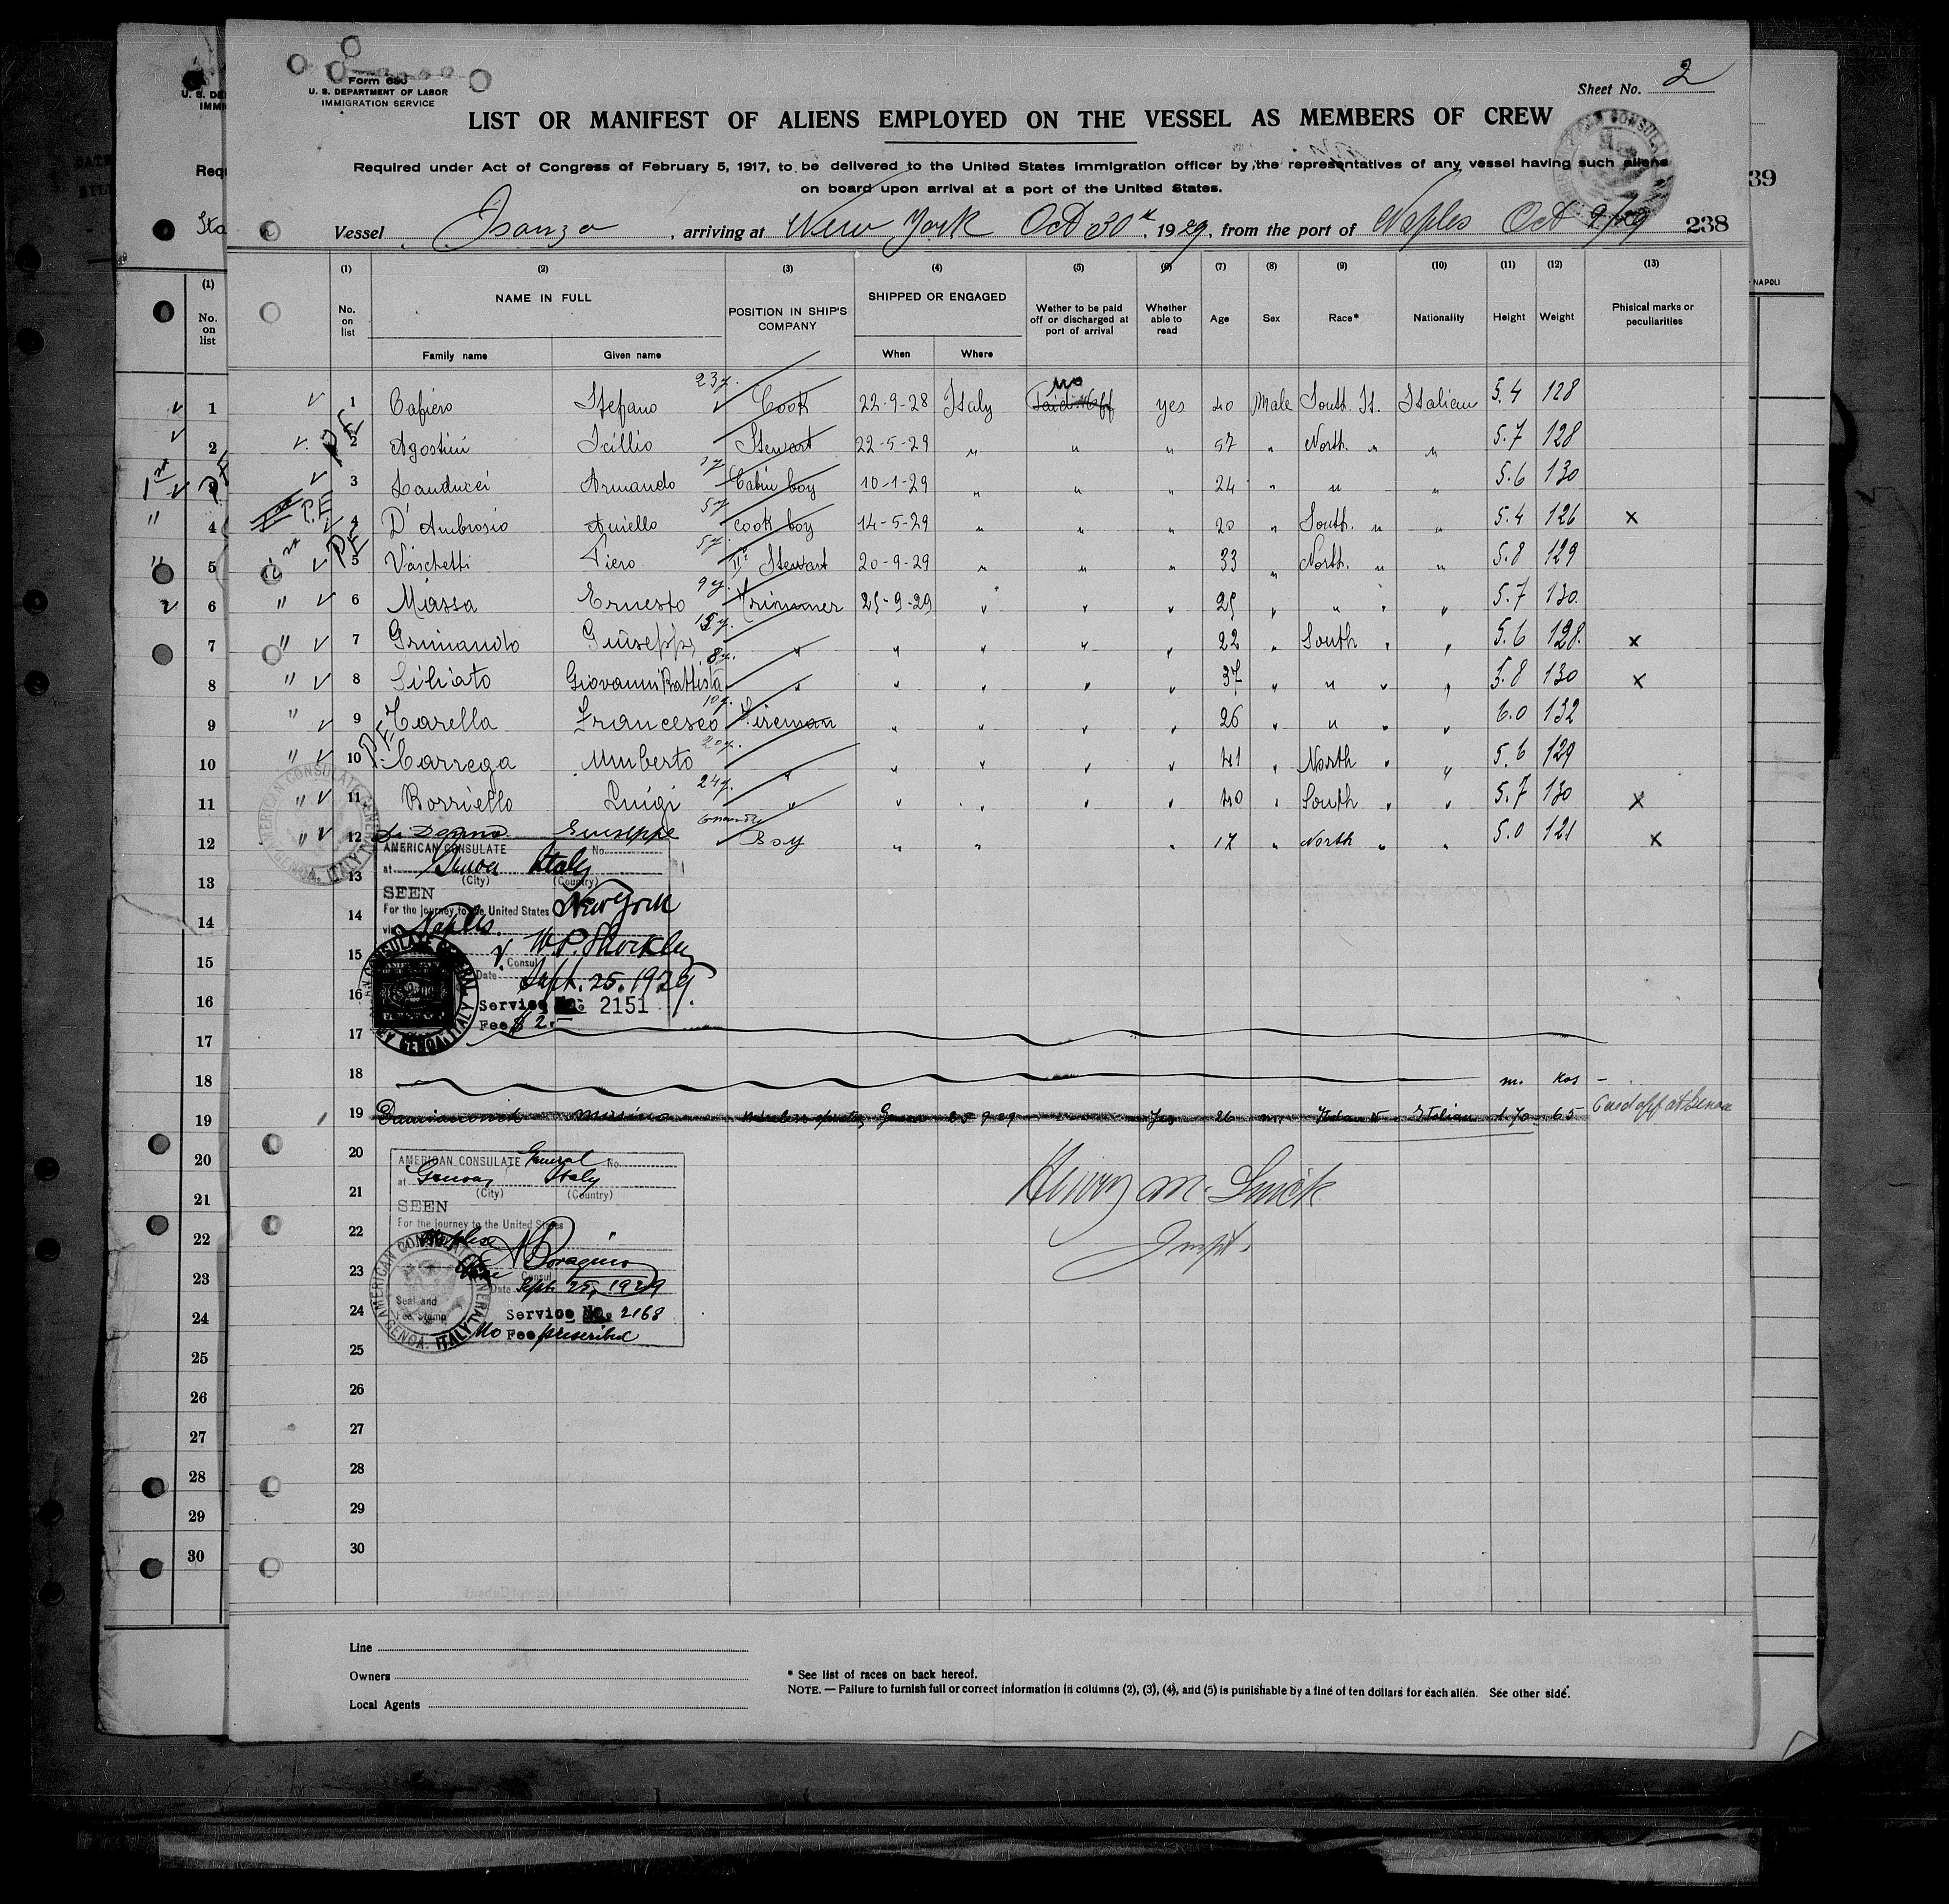 Form 680
U. S. DEPARTMENT OF LABOR
IMMIGRATION SERVICE
Sheet No. 2
LIST OR MANIFEST OF ALIENS EMPLOYED ON THE VESSEL AS MEMBERS OF CREW
Required under Act of Congress of February 5, 1917, to be delivered to the United States Immigration officer by the representatives of any vessel having such aliens
on board upon arrival at a port of the United States.
Vessel Isonzo, arriving at New York Oct 30th, 1929, from the port of Naples Oct 9/29 238
(1) (2) (3) (4) (5) (6) (7) (8) (9) (10) (11) (12) (13)
No. on list NAME IN FULL POSITION IN SHIP'S COMPANY SHIPPED OR ENGAGED Wether to be paid off or discharged at port of arrival Whether able to read Age Sex Race* Nationality Height Weight Phisical marks or peculiarities
Family name Given name When Where
1 Cafiero Stefano 23y. Cook 22-9-28 Italy no Paid off yes 40 Male South. It. Italian 5.4 128
2 Agostini Icillio Stewart 22-5-29 " " " 57 " North. " " 5.7 128
3 Landucci Armando 1y Cabin boy 10-1-29 " " " 24 " " " 5.6 130
P.E 4 D'Ambrosio Aniello 5y cook boy 14-5-29 " " " 20 " South. " " 5.4 126 x
P.E 5 Vaschetti Piero 5y. II° Stewart 20-9-29 " " " 33 " North. " " 5.8 129
" 6 Massa Ernesto 9y. Trimmer 25-9-29 " " " 25 " " " " 5.7 130.
" 7 Grimando Giuseppe " " " " " 22 " South " " 5.6 128. x
" 8 Siliato Giovanni Battista 8y. " " " " " 37 " " " " 5.8 130 x
9 Tarella Francesco 10y. Fireman " " " " 26 " " " " 6.0 132
" 10 P.E. Carrega Umberto 20y. " " " " " 41 " North " " 5.6 129
" 11 Borriello Luigi 24y. " " " " " 40 " South " " 5.7 130 x
" 12 Giuseppe Boy " " " 17 " North " " 5.0 121 x
AMERICAN CONSULATE No.
at Genoa Italy
(City) (Country)
13
SEEN
For the journey to the United States New York
14
via Naples
15
Consul
Date Sept. 25. 1929
16
Service No. 2151
Fee $ 2.-
17
18 m. Kos -
19 wireless Genoa 25 9 29 Yes 26 m. Italian 1.70 65 Paid off at Genoa
20
AMERICAN CONSULATE General No.
at Genoa, Italy
(City) (Country)
21
SEEN
Henry M.
For the journey to the United States
22
Inspt.
23
Consul
Date Sept. 25, 1929
Seal and
Fee Stamp
24
Service No. 2168
No Fee prescribed
AMERICAN CONSULATE GENERAL
GENOA, ITALY
25
26
27
28
29
30
Line
Owners
Local Agents
* See list of races on back hereof.
NOTE. — Failure to furnish full or correct information in columns (2), (3), (4), and (5) is punishable by a fine of ten dollars for each alien. See other side.
39
NAPOLI